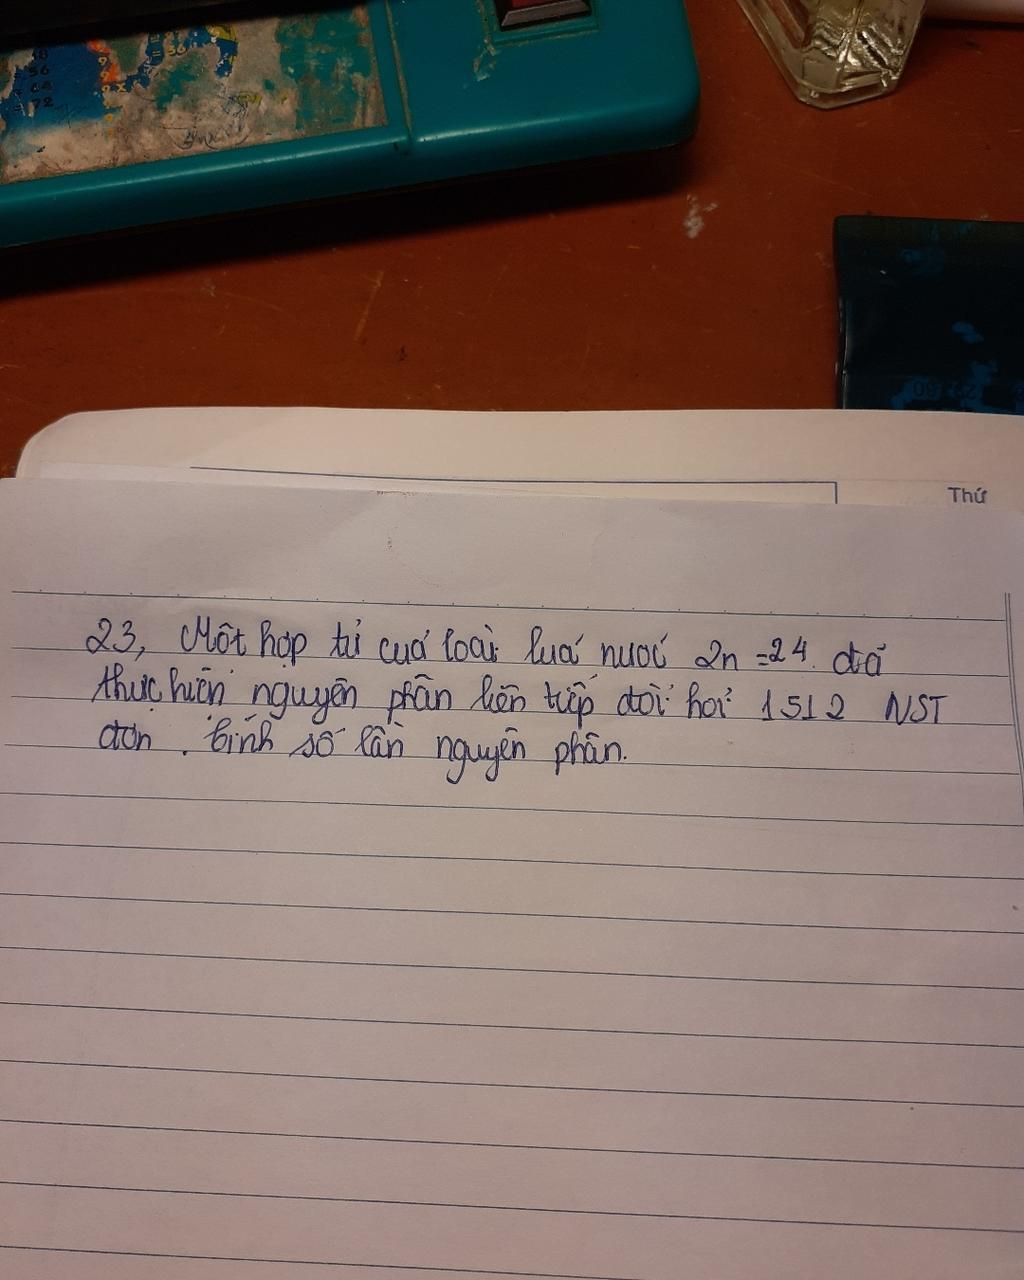 48
= 56
= 64
= 72
= 36
Thứ
23, Một hợp tử cuả loài luá nước 2n = 24. đã
thực hiện nguyên phân liên tiếp đòi hỏi 1512 NST
đơn. tính số lần nguyên phân.